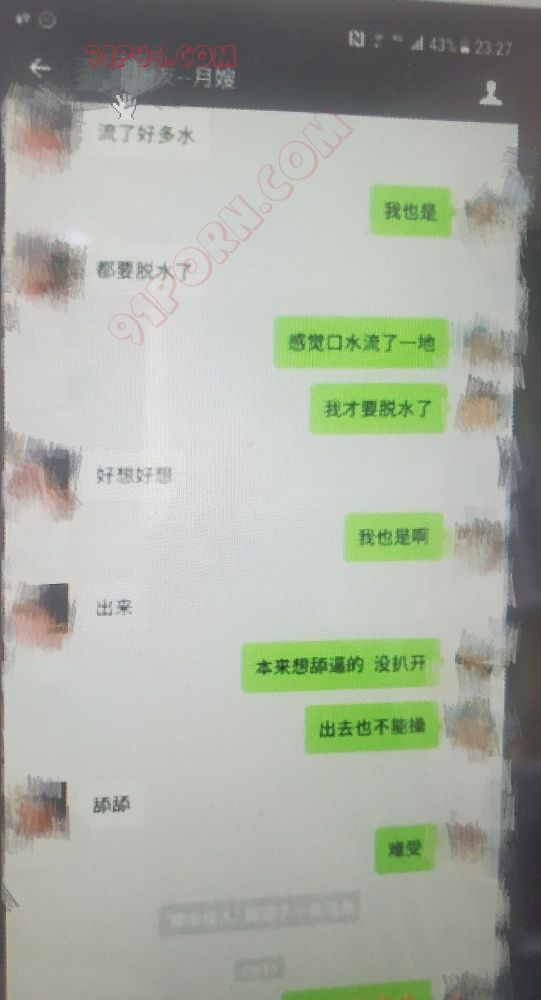 43% 23:27
91P46.COM
友--月嫂
流了好多水
我也是
91PORN.COM
都要脱水了
感觉口水流了一地
我才要脱水了
好想好想
我也是啊
出来
本来想舔逼的 没扒开
出去也不能操
舔舔
难受